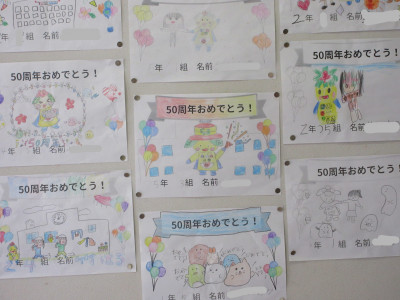 年 組 名前
年 組 名前
2年 組 名前
50周年おめでとう！
年 組 名前
50周年おめでとう！
年 組 名前
50周年おめでとう！
2年 組 名前
50周年おめでとう！
年 組 名前
50周年おめでとう！
年 組 名前
50周年おめでとう！
年 組 名前
50周年おめでとう！
年 組 名前